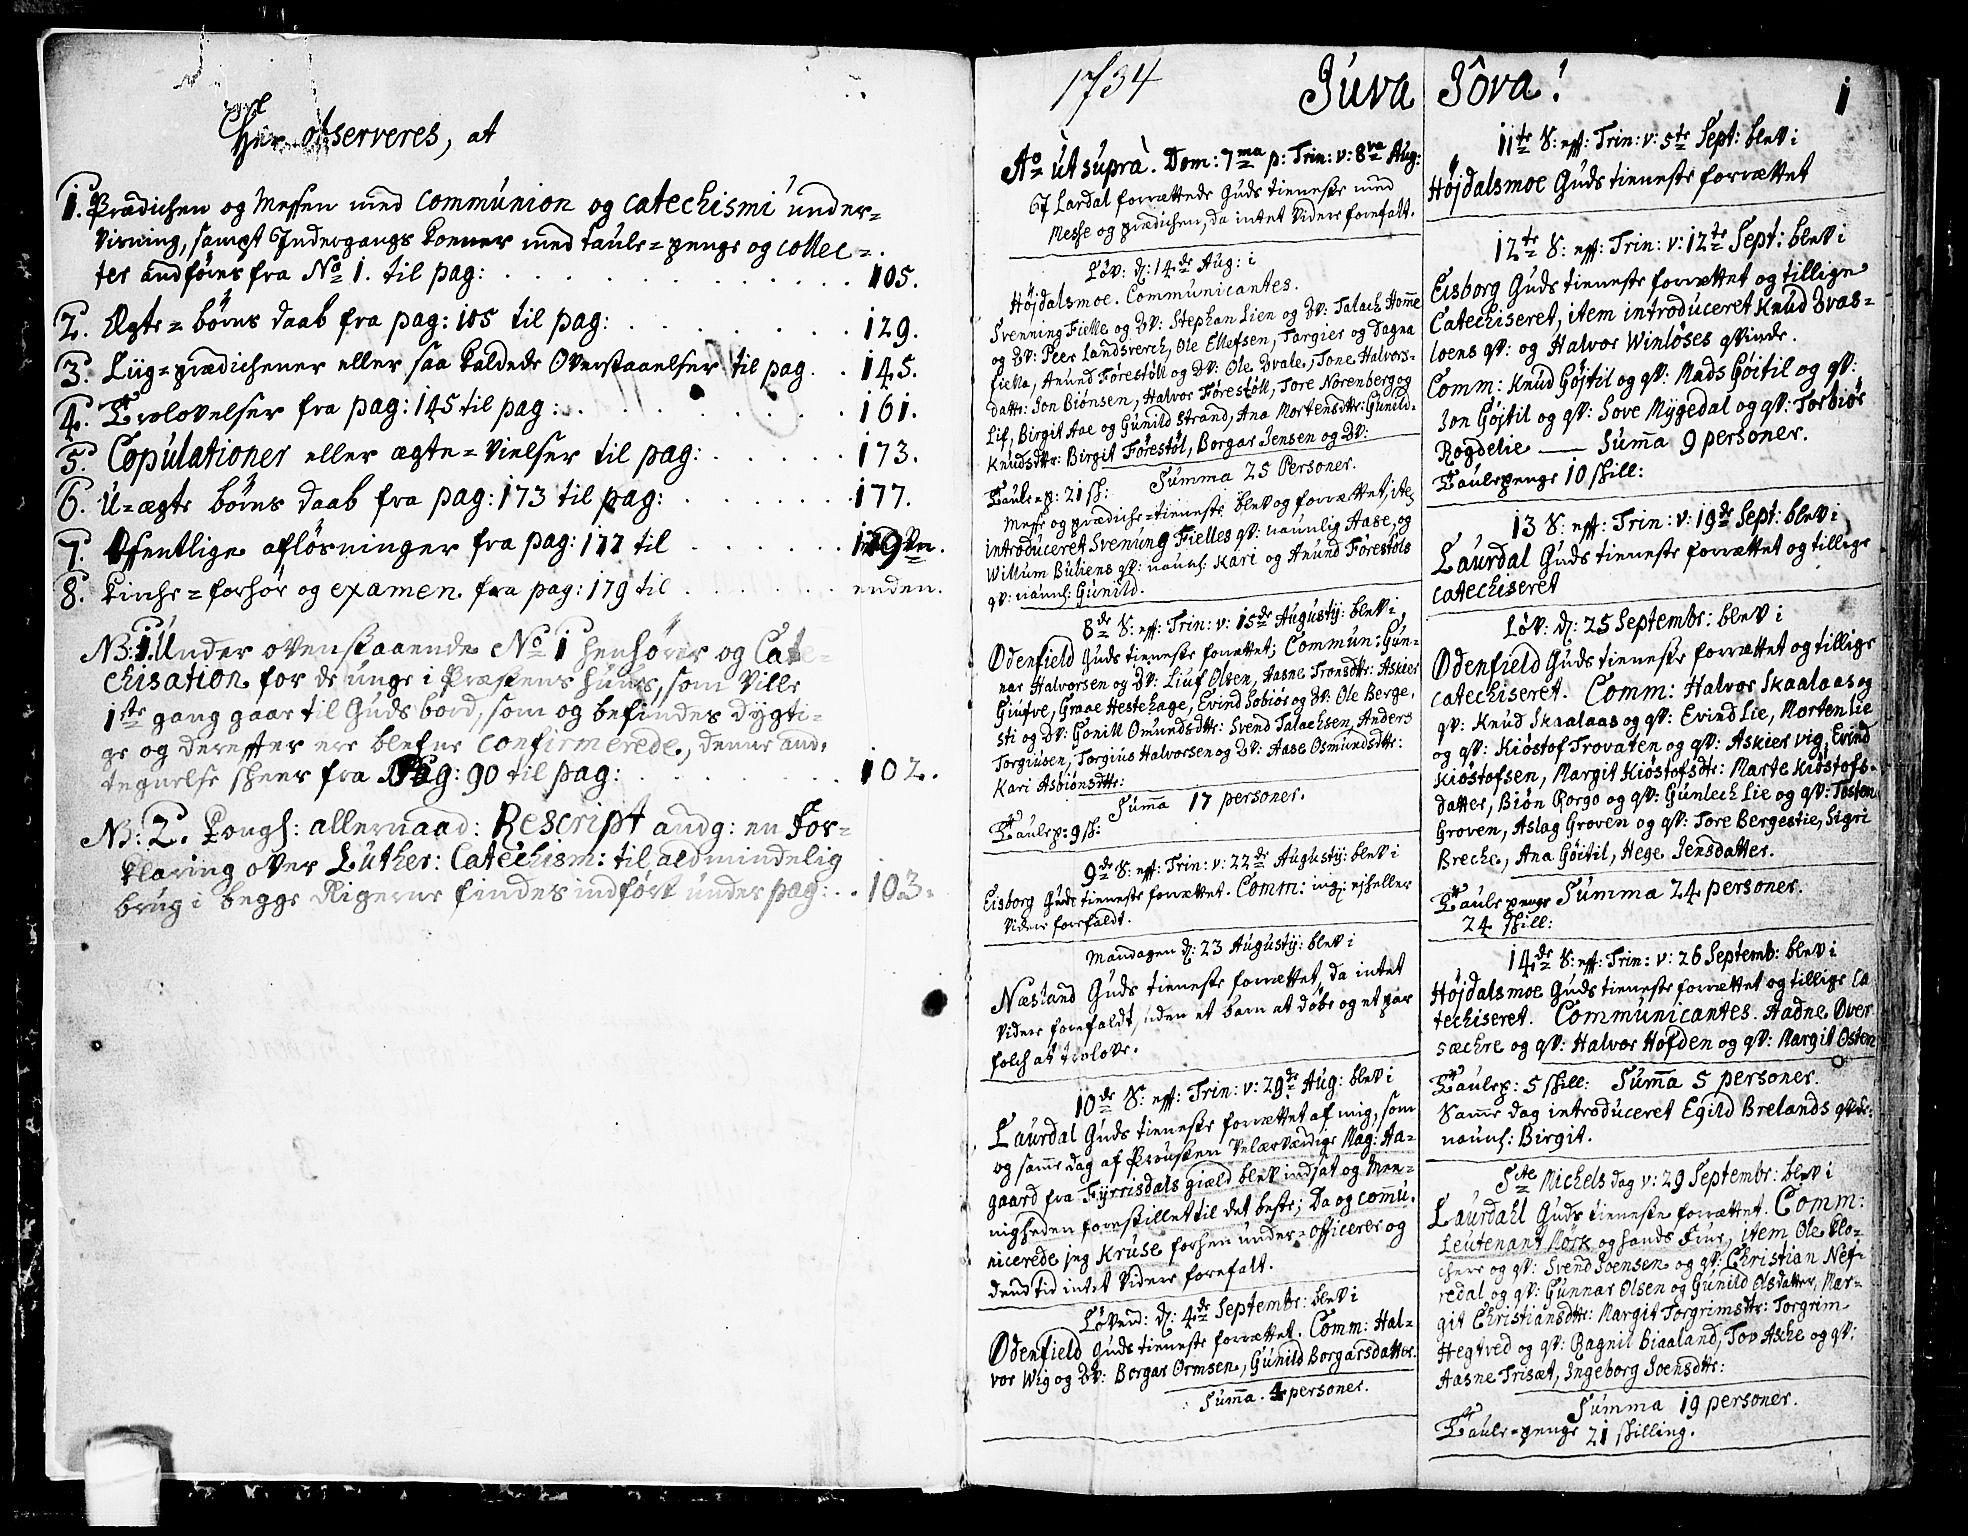 Her observeres, at
1. Prædichen og Messen med Communion og catechismi under=
visning, sampt Indergangs Koener med taule=penge og collec=
ter andføres fra No 1. til pag: . . . 105.
2. Ægte=børns daab fra pag: 105 til pag: . . . 129.
3. Liig=prædichener eller saa kaldede Overstaaelser til pag . . 145.
4. Trolovelser fra pag: 145 til pag: . . . 161.
5. Copulationer eller ægte=Vielser til pag: . . . 173.
6. U=ægte børns daab fra pag: 173 til pag: . . . 177.
7. Offentlige afløsninger fra pag: 177 til . . . 179
8. Kirche=forhør og examen fra pag: 179 til . . . enden.
NB: 1. Under ovenstaaende No 1 henhører og Cate=
chisation for de unge i Præstens huus, som Ville
1ste gang gaar til Guds bord, som og befindes dygti=
ge og dereffter ere blefne confirmerede, denne and=
tegnelse scheer fra Pag: 90 til pag: . . . 102.
NB: 2. Kongl: allernaad: Rescript andg: en For=
klaring over Luther: Catechism: til aldmindelig
brug i begge Rigerne findes indført under pag: . . 103.
1734 Juva Jôva! 1
Ao ut supra. Dom: 7ma p: Trin: v: 8va Aug:
Lardal forrættede Guds tieneste med
Messe og prædichen, da intet videre forefalt.
Løv: d: 14de Aug: i
Højdalsmoe. Communicantes.
Svenning Fielle og QV: Stephan Lien og QV: Talach Homme
og QV: Peer Landsverch, Ole Ellefsen, Targier og Dagna
Fiella, Anund Førestøll og QV: Ole Dvale, Tone Halvors=
datt: Jon Biønsen, Halvor Førestøll, Tore Norenberg og
Lif, Birgit Aae og Gunild Strand, Ana Mortensdtr: Gunild
Knudsdtr: Birgit Førestøl, Borgar Jensen og QV:
Taulep: 21 sh: Summa 25 Personer.
Messe og prædiche=tieneste blev og forrættet, ite
introduceret Svenung Fielles qv: naunlig Aase, og
Willum Buliens qv: naunl: Kari og Anund Førestøls
qv: naunl: Gunild.
8de S: eff: Trin: v: 15de Augusty: blev i
Odenfield Guds tieneste forrættet; Commun: Gun=
nar Halvorsen og QV: Liuf Olsen, Aasne Tronsdtr: Askier
Giufve, Graae Hestehage, Evind Sobiør og QV: Ole Berge,
sti og QV: Gonill Omundsdtr: Svend Talachsen, Anders
Torgiusen, Torgius Halvorsen og QV: Aase Osmundsdtr:
Kari Asbiønsdtr:
Summa 17 personer.
Taulep: 9 sh:
9de S: eff: Trin: v: 22de Augusty: blev i
Eisborg Guds tieneste forrættet. Comm: ing: ej heller
videre forefaldt.
Mandagen d: 23 Augusty: blev i
Næsland Guds tieneste forrættet, da intet
videre forefaldt, uden et barn at døbe og et par
folch at trolove.
10de S: eff: Trin: v: 29de Aug: blev i
Laurdal Guds tieneste forrættet af mig, som
og samme dag af Prousten Velærværdige Mag: Aa=
gaard fra Fyrrisdals gield blev indsat og Men=
nigheden forestillet til det beste; Da og commu=
nicerede jeg Kruse forhen under=officerer og
dend tid intet videre forefalt.
Løvend: d: 4de Septembr: blev i
Odenfield Guds tieneste forrættet. Comm: Hal=
vor Wig og QV: Borgar Ormsen, Gunild Borgarsdatter.
Summa. 4 personer.
11te S: eff: Trin: v: 5te Sept: blev i
Højdalsmoe Guds tieneste forrættet
12te S: eff: Trin: v: 12te Sept: blev i
Eisborg Guds tieneste forrættet og tillige
Catechiseret, item introduceret Knud Dvas=
loens qv: og Halvor Winløses qvinde.
Comm: Knud Gøjtil og qv: Mads Gøitil og qv:
Jon Gøjtil og qv: Sove Mygedal og qv: Torbiør
Rogdelie — Summa 9 personer.
Taulepenge 10 skill:
13 S: eff: Trin: v: 19de Sept: blev i
Laurdal Guds tieneste forrættet og tillige
catechiseret
Løv: d: 25 Septembr: blev i
Odenfield Guds tieneste forrættet og tillige
catechiseret. Comm: Halvor Skaalaas og
qv: Knud Skaalaas og qv: Evind Lie, Morten Lie
og qv: Kiøstof Trovaten og qv: Askier vig, Evind
Kiøstofsen, Margit Kiøstofsdtr: Marte Kiøstofs=
datter, Biøn Rorgo og qv: Gunlech Lie og qv: Tosten
Groven, Aslag Groven og qv: Tore Bergestie, Sigri
Breche, Ana Gøitil, Hege Jensdatter.
Taulepenge Summa 24 personer.
24 skill:
14de S: eff: Trin: v: 26 Septemb: blev i
Højdalsmoe Guds tieneste forrættet og tillige Ca
techiseret. Communicantes. Aadne Over
sæchre og qv: Halvor Høfden og qv: Margit Osten
Taulep: 5 skill: Summa 5 personer.
Samme dag introduceret Egild Brelands qvde:
naunl: Birgit.
Scte Michels dag v: 29 Septembr: blev i
Laurdahl Guds tieneste forrættet. Comm:
Leutenant Mork og hands Frue, item Ole Klo=
chere og qv: Svend Soensen og qv: Christian Nef=
redal og qv: Gunnar Olsen og Gunild Olsdatter, Mar=
git Christiansdtr: Margit Torgrimsdtr: Torgrim
Hegtved og qv: Ragnil Biaaland, Tov Ashe og qv:
Aasne Trisæt, Ingeborg Soensdtr:
Summa 19 personer.
Taule=penge 21 skilling.